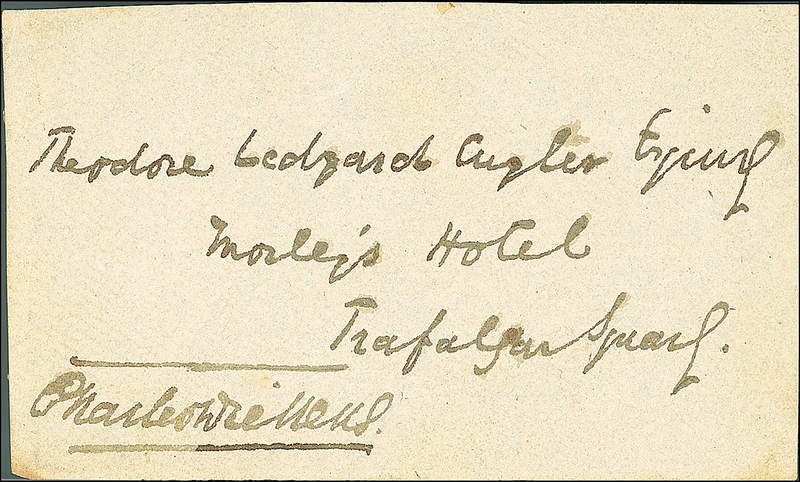 Theodore Ledyard Cuyler Esquire
Morley's Hotel
Trafalgar Square.
Charles Dickens.